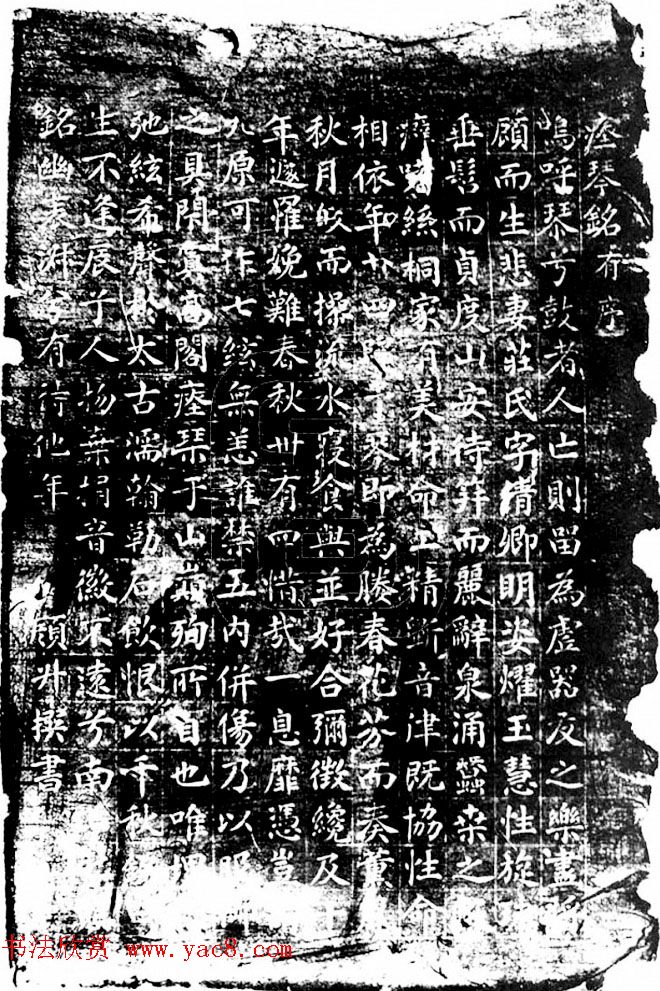 瘞琴銘有序
嗚呼琴兮鼓者人亡則留為虛器反之樂盡
顧而生悲妻莊氏字清卿明姿燿玉慧性旋
垂髫而貞度山安待笄而麗辭泉涌蠶桑之
絲桐家有美材命工精斲音津既協性命
相依年廿四歸于琴即為媵春花芬而奏薰
秋月皎而操流水寢食與並好合彌徴纔及
年遽罹娩難春秋卅有四惜哉一息靡憑豈
九原可作七絃無恙誰禁五内併傷乃以
之具閉寘高閣瘞琴于山巔殉所自也唯
弛絃希聲於太古濡翰勒石飲恨以千秋銘
生不逢辰子人物棄捐音徽不遠兮南
銘幽夫湖兮有待他年 顧升撰書
书法欣赏 www.yac8.com